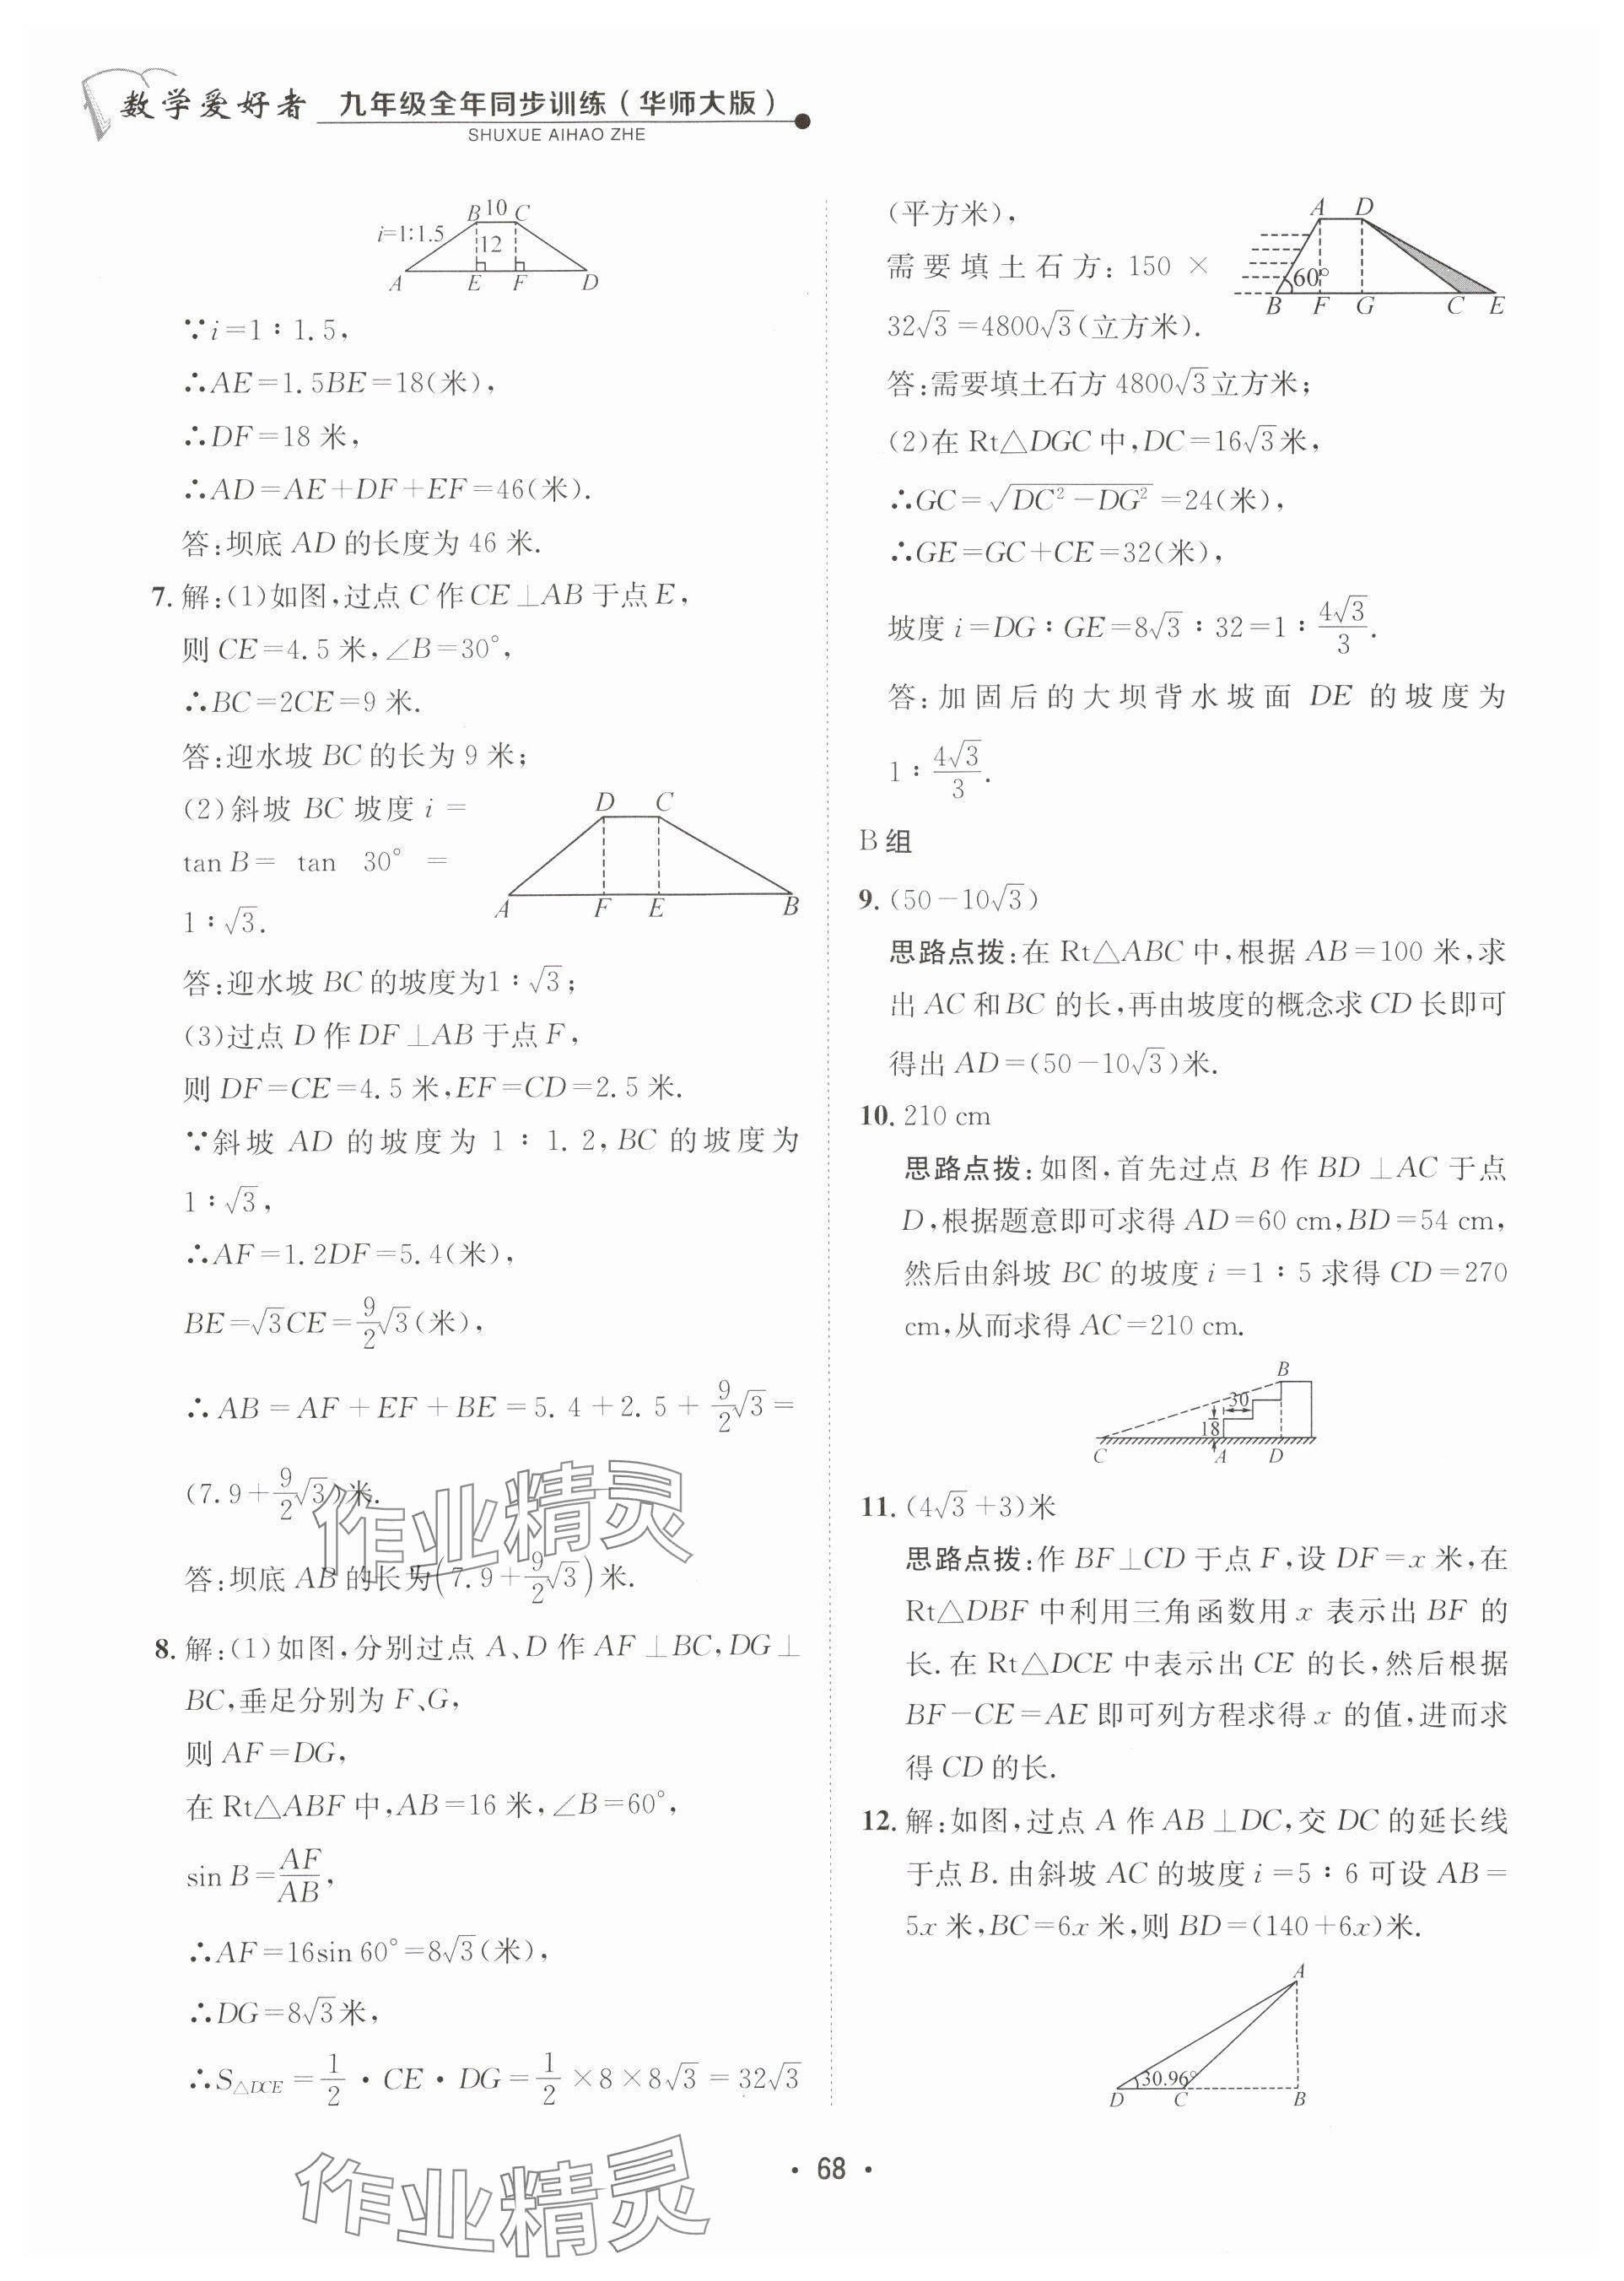 数学爱好者 九年级全年同步训练(华师大版)
SHUXUE AIHAO ZHE
B 10 C
i=1:1.5
12
A E F D
∵i=1∶1.5,
∴AE=1.5BE=18(米),
∴DF=18 米,
∴AD=AE+DF+EF=46(米).
答:坝底 AD 的长度为 46 米.
7. 解:(1)如图,过点 C 作 CE⊥AB 于点 E,
则 CE=4.5 米,∠B=30°,
∴BC=2CE=9 米.
答:迎水坡 BC 的长为 9 米;
(2)斜坡 BC 坡度 i=
tan B= tan 30° =
1∶√3.
D C
A F E B
答:迎水坡 BC 的坡度为1∶√3;
(3)过点 D 作 DF⊥AB 于点 F,
则 DF=CE=4.5 米,EF=CD=2.5 米.
∵斜坡 AD 的坡度为 1∶1.2,BC 的坡度为
1∶√3,
∴AF=1.2DF=5.4(米),
BE=√3CE=9/2√3(米),
∴AB=AF+EF+BE=5.4+2.5+9/2√3=
(7.9+9/2√3)米.
答:坝底 AB 的长为(7.9+9/2√3)米.
8. 解:(1)如图,分别过点 A、D 作 AF⊥BC,DG⊥
BC,垂足分别为 F、G,
则 AF=DG,
在 Rt△ABF 中,AB=16 米,∠B=60°,
sin B=AF/AB,
∴AF=16sin 60°=8√3(米),
∴DG=8√3米,
∴S△DCE=1/2·CE·DG=1/2×8×8√3=32√3
(平方米),
需要填土石方:150×
32√3=4800√3(立方米).
A D
60°
B F G C E
答:需要填土石方 4800√3立方米;
(2)在 Rt△DGC 中,DC=16√3米,
∴GC=√(DC²−DG²)=24(米),
∴GE=GC+CE=32(米),
坡度 i=DG∶GE=8√3∶32=1∶4√3/3.
答:加固后的大坝背水坡面 DE 的坡度为
1∶4√3/3.
B 组
9. (50−10√3)
思路点拨:在 Rt△ABC 中,根据 AB=100 米,求
出 AC 和 BC 的长,再由坡度的概念求 CD 长即可
得出 AD=(50−10√3)米.
10. 210 cm
思路点拨:如图,首先过点 B 作 BD⊥AC 于点
D,根据题意即可求得 AD=60 cm,BD=54 cm,
然后由斜坡 BC 的坡度 i=1∶5 求得 CD=270
cm,从而求得 AC=210 cm.
B
30
18
C A D
11. (4√3+3)米
思路点拨:作 BF⊥CD 于点 F,设 DF=x 米,在
Rt△DBF 中利用三角函数用 x 表示出 BF 的
长.在 Rt△DCE 中表示出 CE 的长,然后根据
BF−CE=AE 即可列方程求得 x 的值,进而求
得 CD 的长.
12. 解:如图,过点 A 作 AB⊥DC,交 DC 的延长线
于点 B.由斜坡 AC 的坡度 i=5∶6 可设 AB=
5x 米,BC=6x 米,则 BD=(140+6x)米.
A
30.96°
D C B
作业精灵
作业精灵
·68·